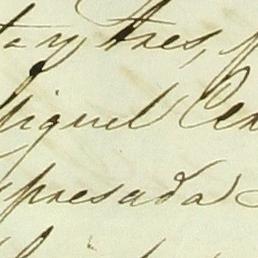 ta y tres,
Miguel Cer
xpresada